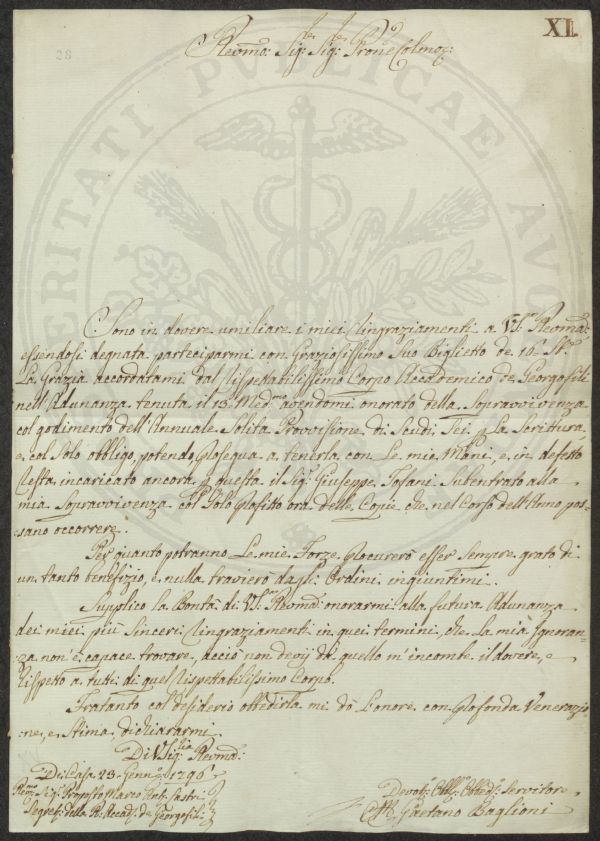 XI.
28
Revmo: Sig: Sig: Prone Colmo:
Sono in dovere umiliare i miei ringraziamenti a VS. Revma:
essendosi degnata parteciparmi con Graziosissimo Suo Biglietto de 16. St.e
La Grazia accordatami dal rispettabilissimo Corpo Accademico de Georgofili
nell'Adunanza tenuta il 13. Med.mo avendomi onorato della Sopravvivenza
col godimento dell'Annuale Solita Provvisione di Scudi Sei p. la Scrittura,
e col Solo obbligo, potendo, proseguà a tenerla con Le mie Mani, e in defetto
resta incaricato ancora p. questa il Sig. Giuseppe Tofani Subentrato alla
mia Sopravvivenza col Solo Profitto ora delle Copie che nel Corso dell'Anno pos-
sano occorrere.
Per quanto potranno Le mie Forze procurerò esser Sempre grato di
un tanto benefizio, e nulla travierò dagli Ordini ingiuntimi.
Supplico la Bontà di VS. Revma: onorarmi alla futura Adunanza
dei miei più Sinceri ringraziamenti in quei termini, che La mia Ignoran-
za non è capace trovare, acciò non devij da quello m'incombe il dovere, e
rispetto a tutti di quel rispettabilissimo Corpo.
Fratanto col desiderio obbedirla mi dò L'onore con profonda Venerazio-
ne, e Stima dichiararmi.
Di VSig:ria Revma:
Di Casa 23. Genn.o 1796
Revmo Sig. Proposto Marco Lastri
Segret: della R. Accad: de Georgofili
Devot: Obb: Obbed: Servitore
Gaetano Baglioni
VERITATI PUBLICAE AUG